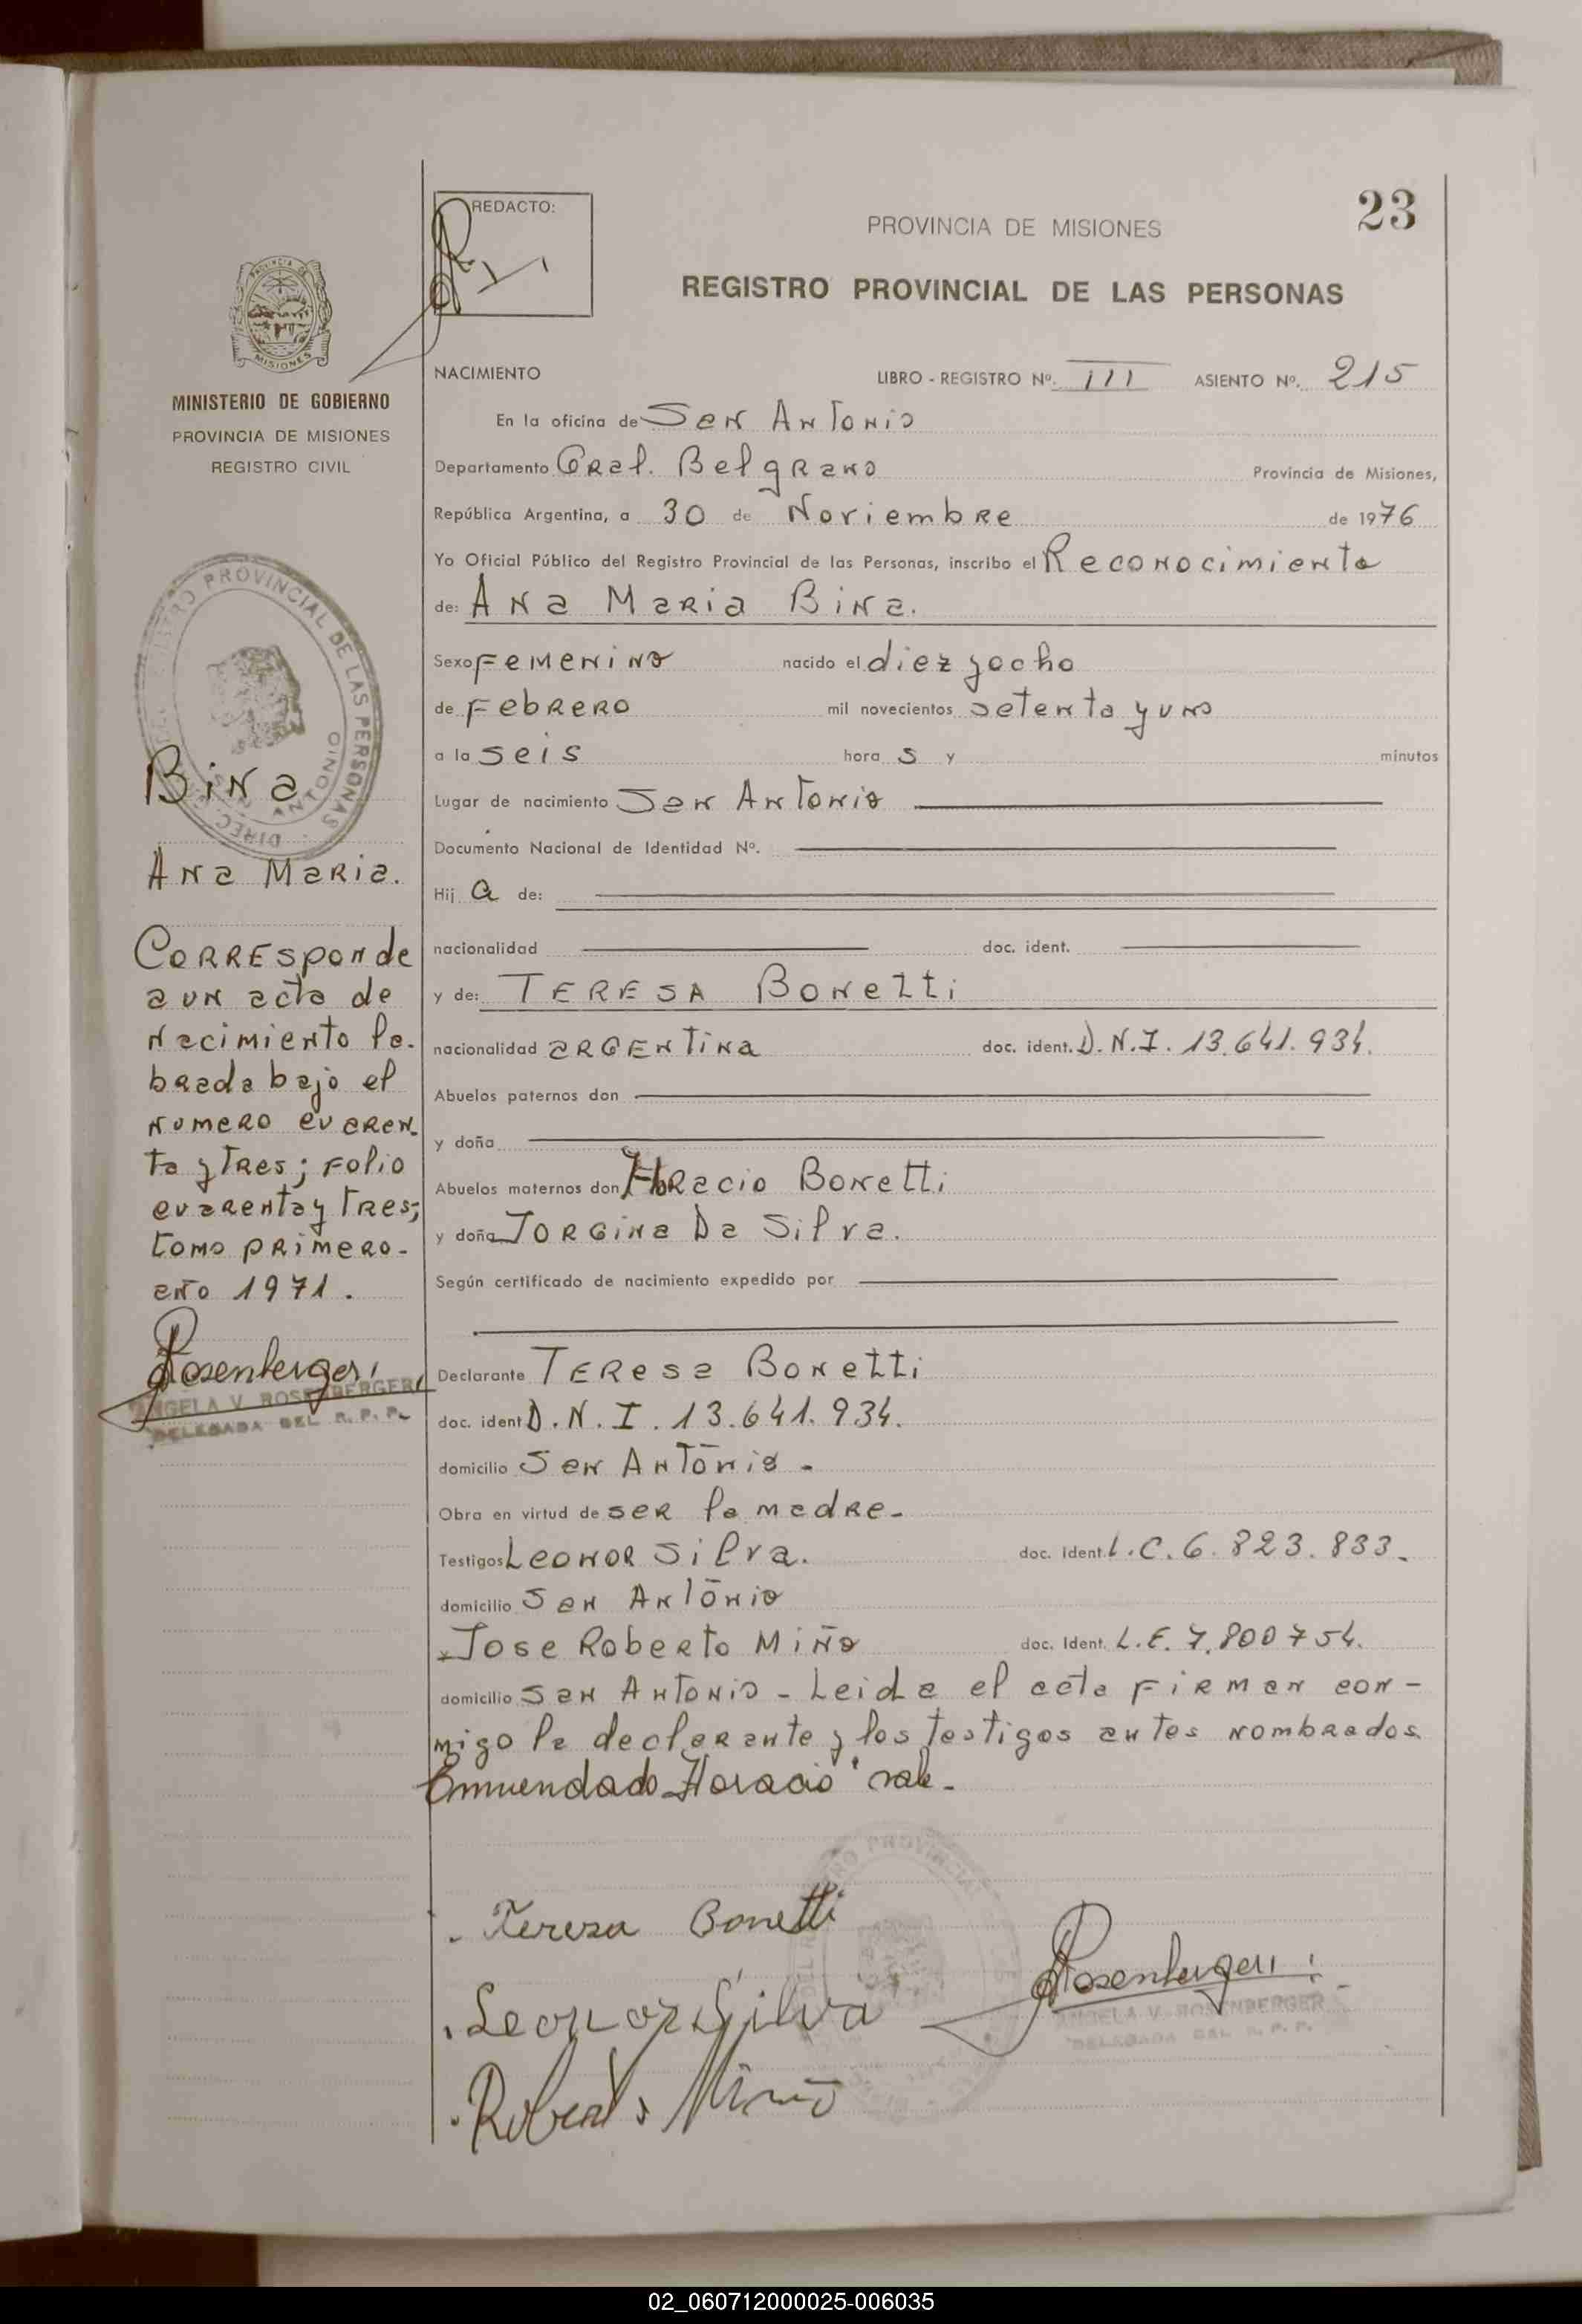 23
REDACTO:
PROVINCIA DE MISIONES
REGISTRO PROVINCIAL DE LAS PERSONAS
PROVINCIA DE
MISIONES
MINISTERIO DE GOBIERNO
PROVINCIA DE MISIONES
REGISTRO CIVIL
NACIMIENTO LIBRO - REGISTRO Nº. III ASIENTO Nº. 215
En la oficina de San Antonio
Departamento Gral. Belgrano Provincia de Misiones,
República Argentina, a 30 de Noviembre de 1976
Yo Oficial Público del Registro Provincial de las Personas, inscribo el Reconocimiento
de: Ana Maria Bina.
Sexo Femenino nacido el diez y ocho
de Febrero mil novecientos setenta y uno
a la seis hora s y minutos
Lugar de nacimiento San Antonio
Documento Nacional de Identidad Nº.
Hij a de:
nacionalidad doc. ident.
y de: TERESA Bonetti
nacionalidad argentina doc. ident. D.N.I. 13.641.934.
Abuelos paternos don
y doña
Abuelos maternos don Horacio Bonetti
y doña Jorgina Da Silva.
Según certificado de nacimiento expedido por
Declarante Teresa Bonetti
doc. ident D.N.I. 13.641.934.
domicilio San Antonio -
Obra en virtud de ser la madre-
Testigos Leonor Silva. doc. ident. L.C. 6.823.833.
domicilio San Antonio
Jose Roberto Miño doc. Ident. L.E. 7.800754.
domicilio San Antonio - Leida el acta firman con-
migo la declarante y los testigos antes nombrados
Enmendado Horacio vale-
REGISTRO PROVINCIAL DE LAS PERSONAS
ANTONIO
Bina
Ana Maria.
Corresponde
a un acta de
nacimiento la-
brada bajo el
numero cuaren-
ta y tres; folio
cuarenta y tres;
tomo primero-
año 1971.
Rosenberger
ANGELA V. ROSENBERGER
DELEGADA DEL R. P. P.
Teresa Bonetti
Leonor Silva
Roberto Miño
Rosenberger
ANGELA V. ROSENBERGER
DELEGADA DEL R. P. P.
02_060712000025-006035